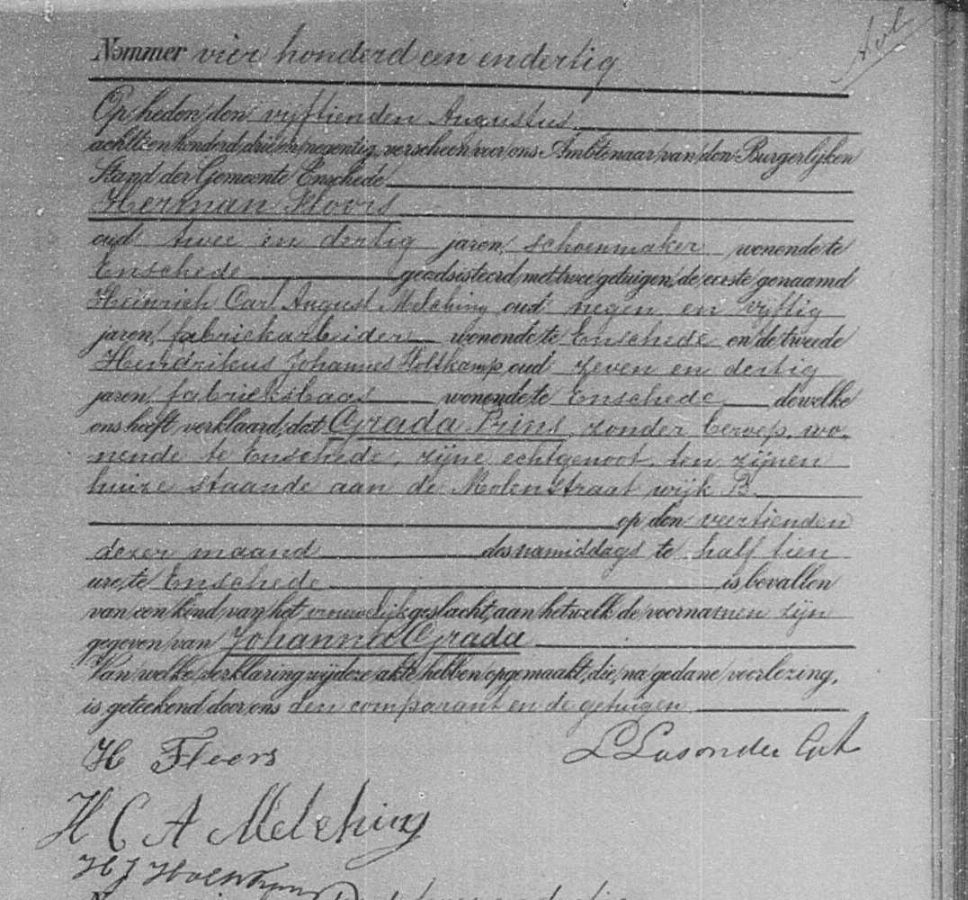 Nommer vier honderd een en dertig
Op heden den vyftienden Augustus
achttien honderd drie en negentig, verscheen voor ons Ambtenaar van den Burgerlijken
Stand der Gemeente Enschede
Herman Floors
oud twee en dertig jaren, schoenmaker wonende te
Enschede geadsisteerd met twee getuigen, de eerste genaamd
Heinrich Carl August Melching oud negen en vyftig
jaren, fabriekarbeider wonende te Enschede en de tweede
Hendrikus Johannes Holtkamp, oud zeven en dertig
jaren, fabrieksbaas wonende te Enschede dewelke
ons heeft verklaard, dat Grada Prins, zonder beroep, wo-
nende te Enschede, zijne echtgenoot, ten zijnen
huize staande aan de Molenstraat wijk B
op den veertienden
dezer maand des namiddags te half tien
ure, te Enschede is bevallen
van een kind van het vrouwelijk geslacht, aan hetwelk de voornamen zijn
gegeven van Johanna Grada
Van welke verklaring wij deze akte hebben opgemaakt, die, na gedane voorlezing,
is geteekend door ons den comparant en de getuigen
H Floors L Lasonder
H C A Melching
H J Holtkamp